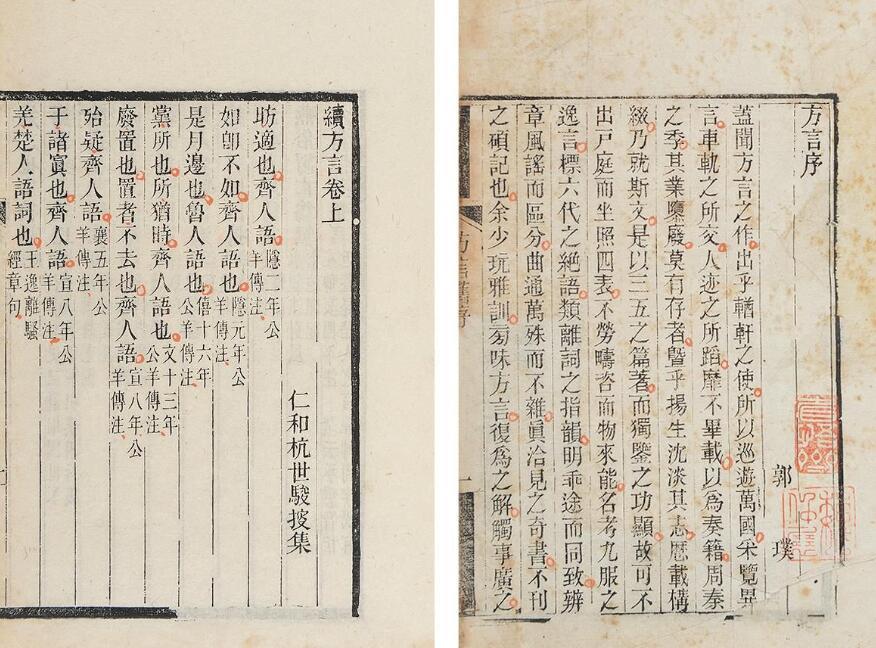 方言序
郭璞
蓋聞方言之作出乎輶軒之使所以巡遊萬國采覽異
言車軌之所交人迹之所蹈靡不畢載以爲奏籍周秦
之季其業隳廢莫有存者曁乎揚生沈淡其志厯載構
綴乃就斯文是以三五之篇著而獨鑒之功顯故可不
出戶庭而坐照四表不勞疇咨而物來能名考九服之
逸言標六代之絕語類離詞之指韻明乖途而同致辨
章風謠而區分曲通萬殊而不雜眞洽見之奇書不刊
之碩記也余少玩雅訓旁味方言復爲之解觸事廣之
續方言卷上
仁和杭世駿搜集
昉適也齊人語隱二年公羊傳注
如卽不如齊人語也隱元年公羊傳注
是月邊也魯人語也僖十六年公羊傳注
黨所也所猶時齊人語也文十三年公羊傳注
廢置也置者不去也齊人語宣八年公羊傳注
殆疑齊人語襄五年公羊傳注
于諸寘也齊人語宣八年公羊傳注
羌楚人語詞也王逸離騷經章句